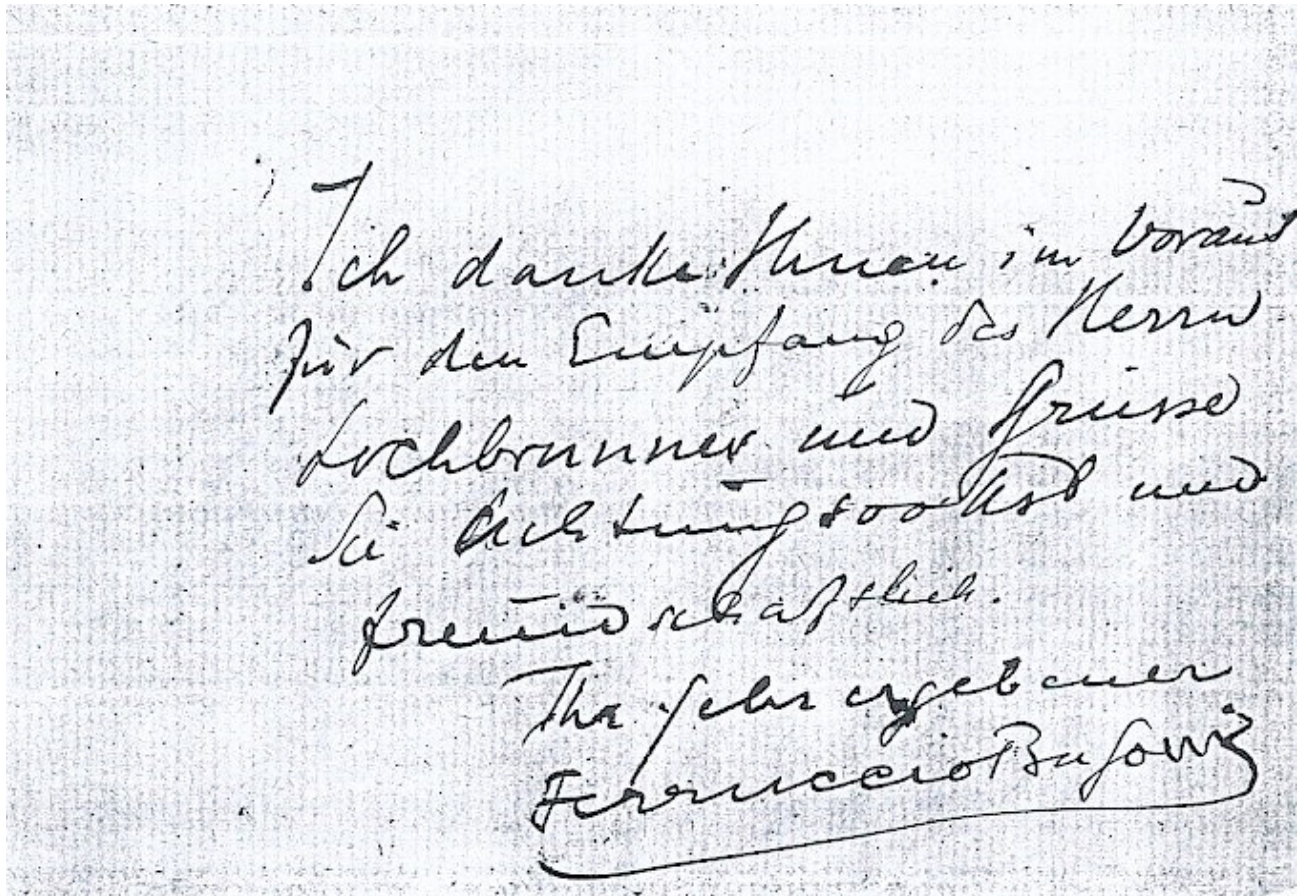 Ich danke Ihnen im Voraus
für den Empfang des Herrn
Lochbrunner und Grüsse
Sie Achtungsvollst und
freundschaftlich.
Ihr sehr ergebener
Ferruccio Busoni